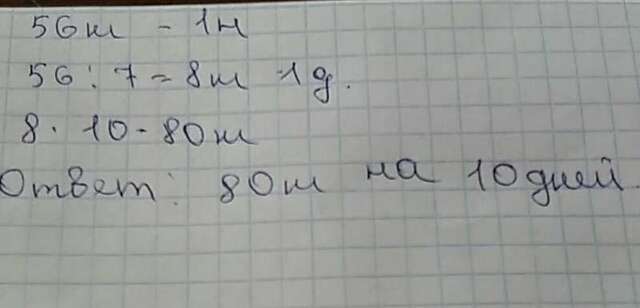 56ш - 1н
56 : 7 = 8ш 1д.
8 · 10 - 80ш
Ответ: 80ш на 10 дней